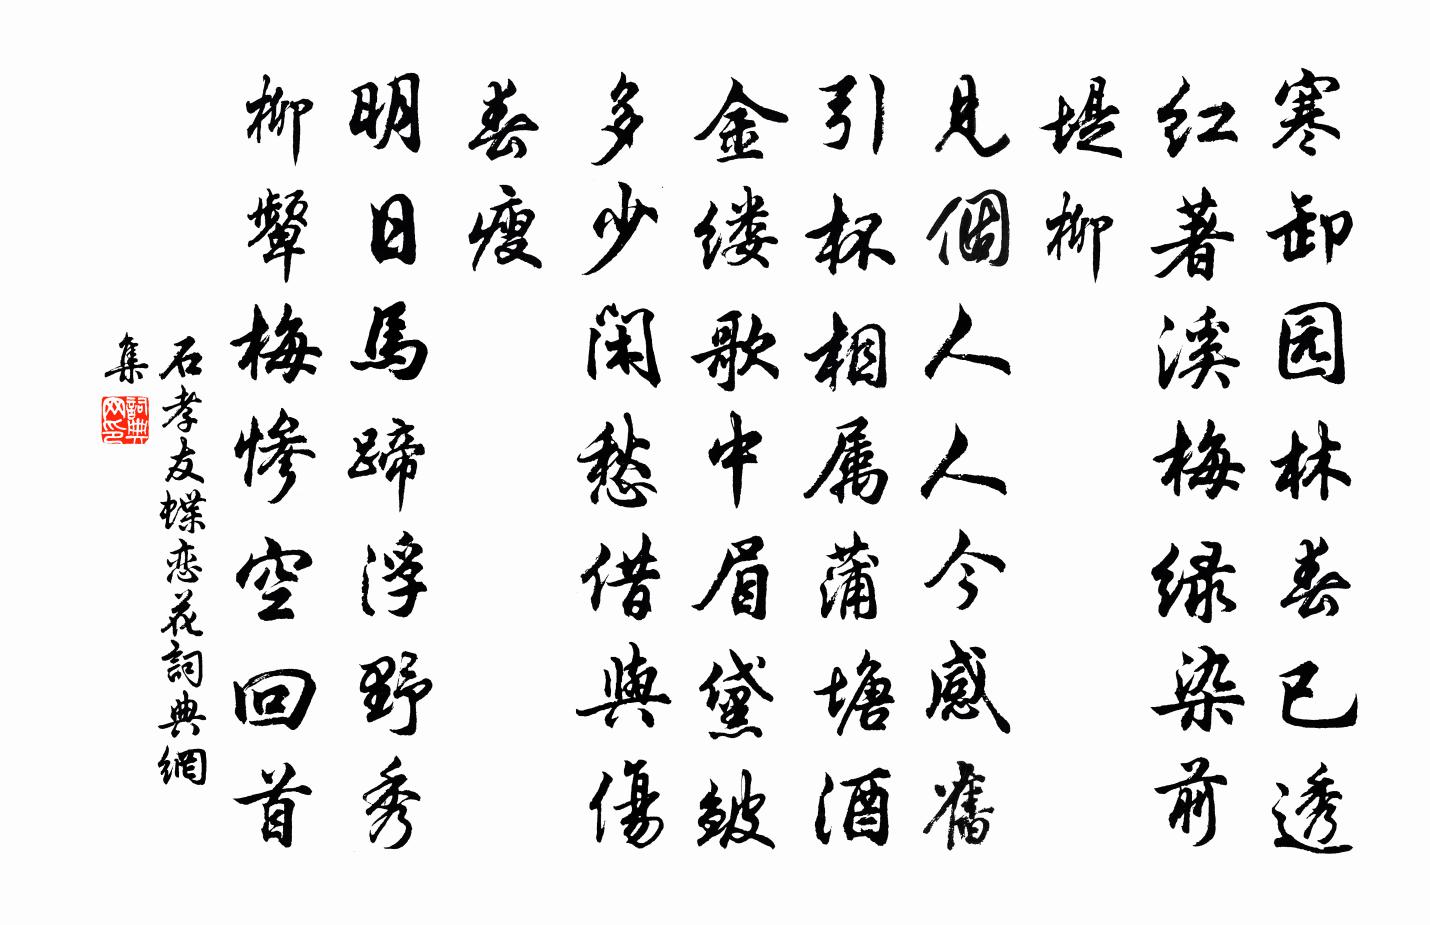 寒卸园林春已透
红著溪梅绿染前
堤柳
見個人人今感舊
引杯相属蒲塘酒
金缕歌中眉黛皱
多少闲愁借與傷
春瘦
明日馬蹄浮野秀
柳顰梅慘空回首
石孝友蝶恋花詞典網
集
詞典网印